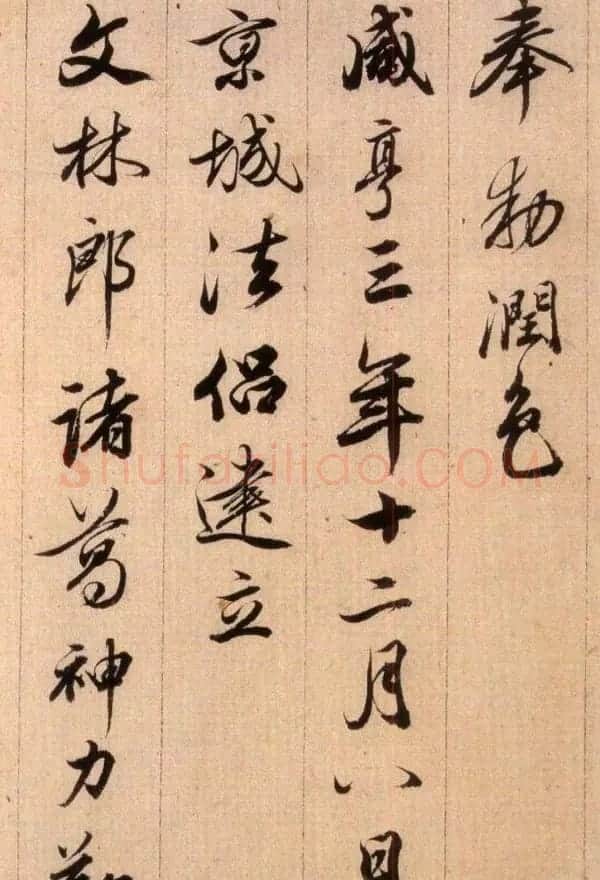 奉勅潤色
咸亨三年十二月八日
京城法侣建立
文林郎諸葛神力
shufaziliao.COM